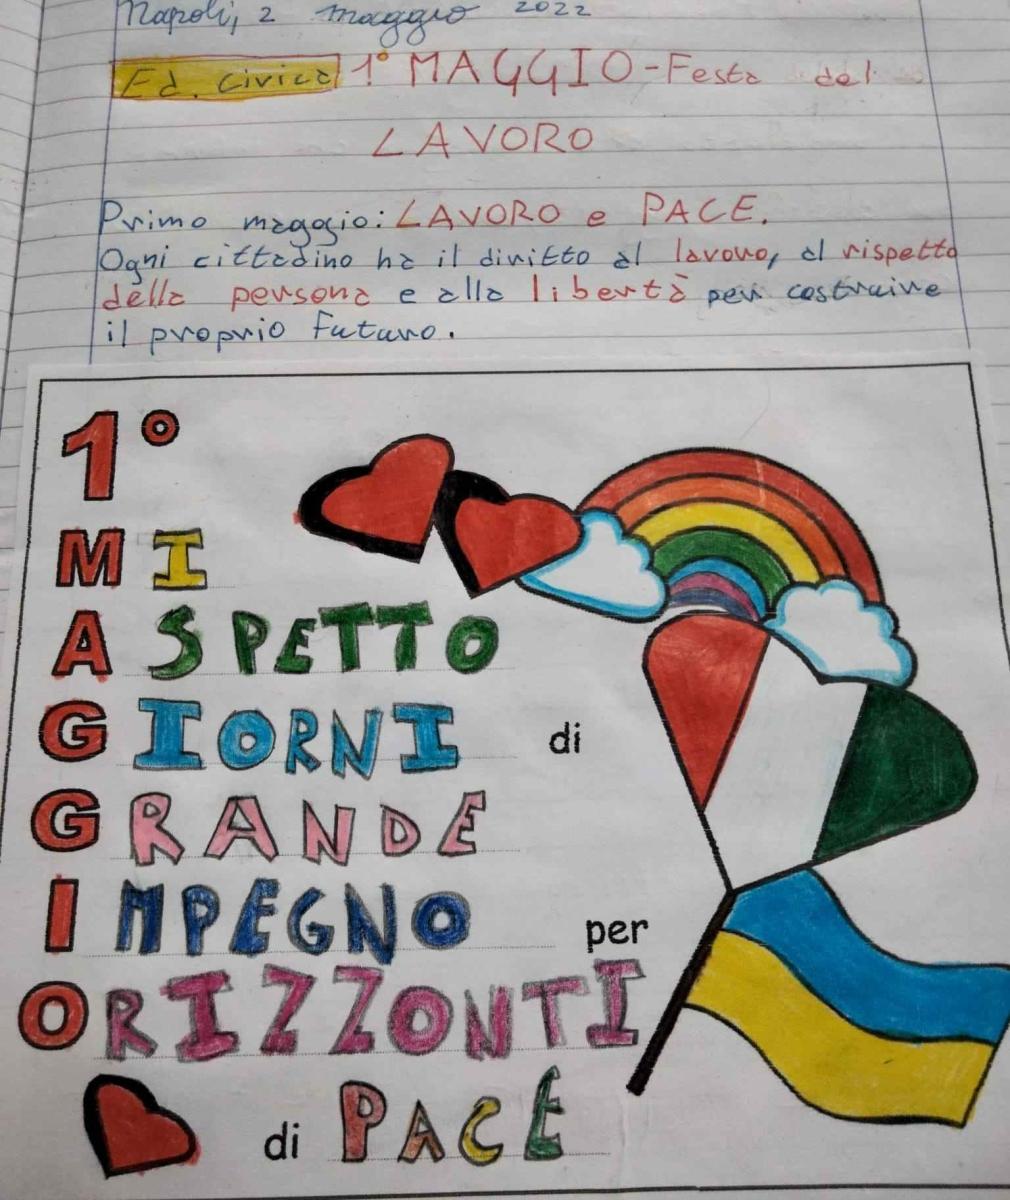 Napoli, 2 maggio 2022
Ed. Civica 1° MAGGIO-Festa del
LAVORO
Primo maggio: LAVORO e PACE.
Ogni cittadino ha il diritto al lavoro, al rispetto
della persona e alla libertà per costruire
il proprio futuro.
1°
MI
ASPETTO
GIORNI di
GRANDE
IMPEGNO per
ORIZZONTI
di PACE